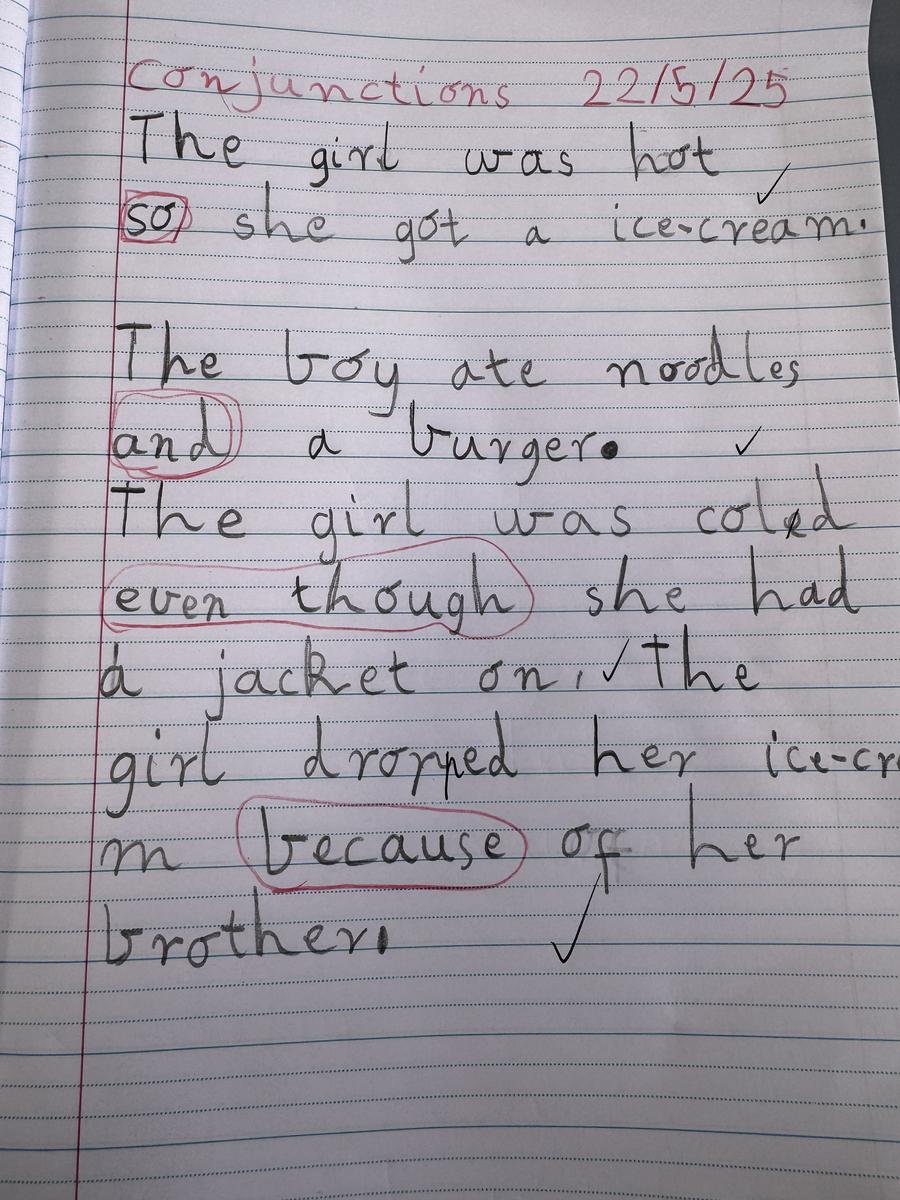 Conjunctions 22/5/25
The girl was hot
so she got a ice-cream.
The boy ate noodles
and a burger.
The girl was coled
even though she had
a jacket on. The
girl dropped her ice-cr
m because of her
brother.